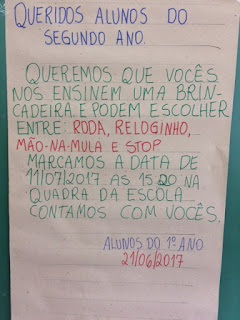 QUERIDOS ALUNOS DO
SEGUNDO ANO.
QUEREMOS QUE VOCÊS
NOS ENSINEM UMA BRIN-
CADEIRA. E PODEM ESCOLHER
ENTRE RODA, RELOGINHO,
MÃO-NA-MULA E STOP
MARCAMOS A DATA DE
11/07/2017 AS 15:20 NA
QUADRA DA ESCOLA.
CONTAMOS COM VOCÊS.
ALUNOS DO 1º ANO
21/06/2017